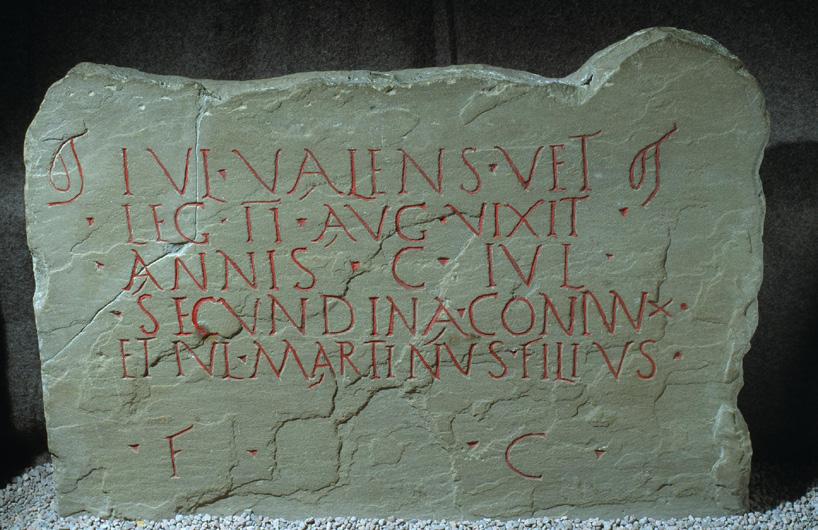 IVL·VALENS·VET
·LEG·II·AVG·VIXIT·
·ANNIS·C·IVL·
·SECVNDINA·CONIVNX·
ET IVL·MARTINVS·FILIVS·
·F·C·